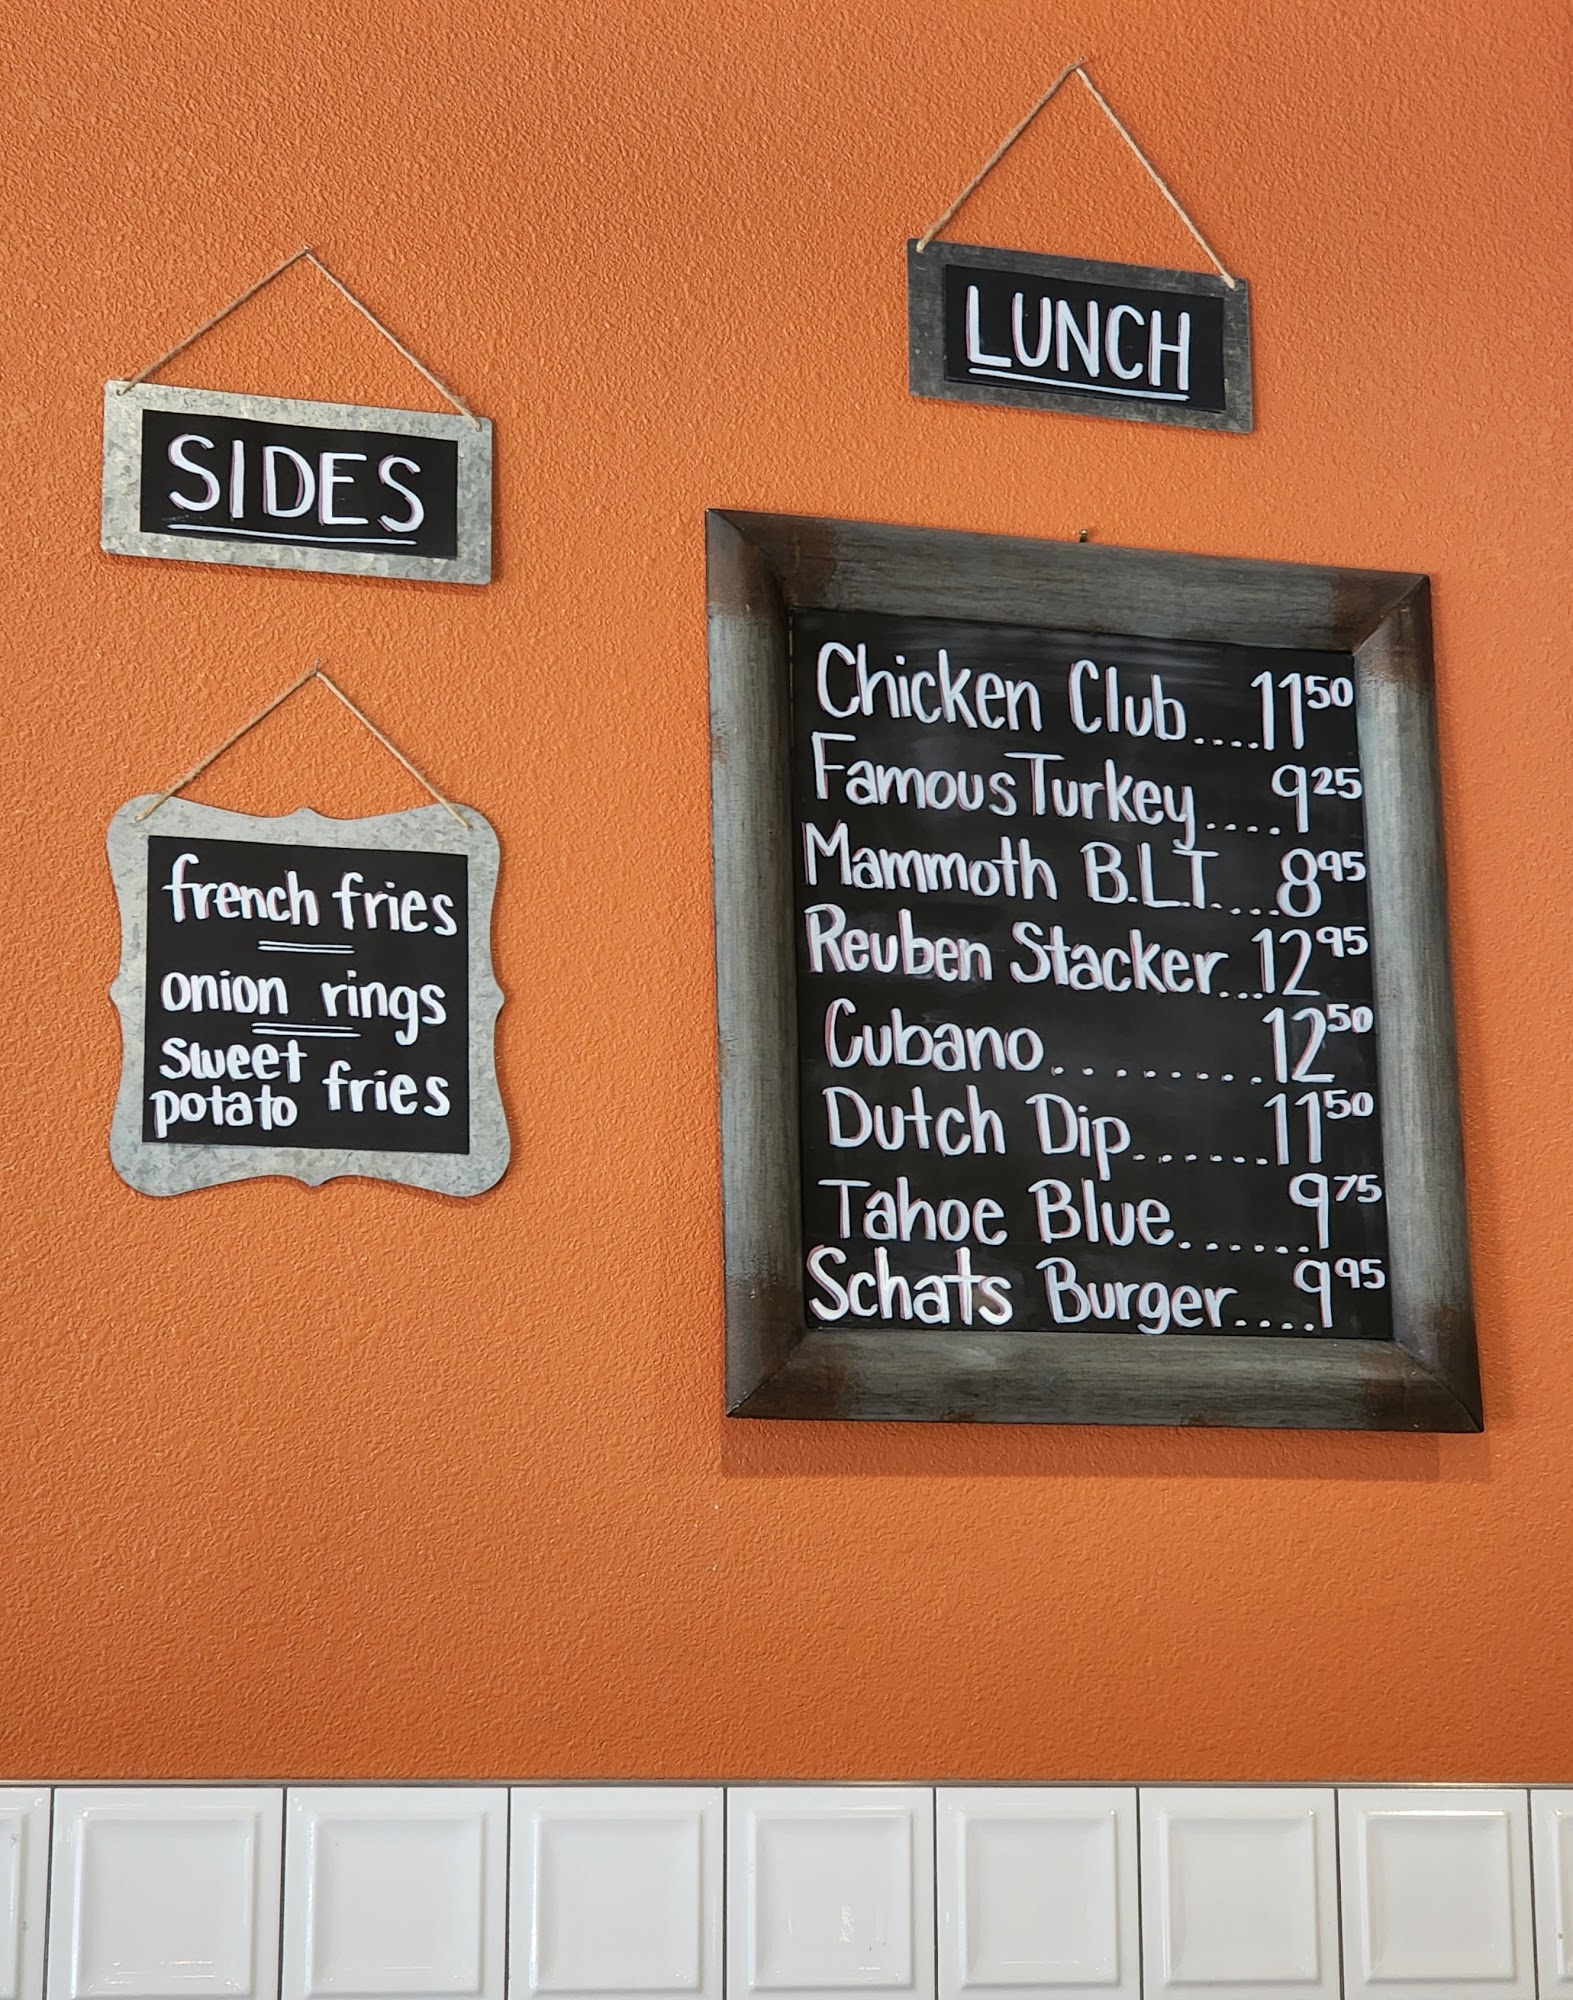 SIDES
french fries
onion rings
sweet potato fries
LUNCH
Chicken Club....11 50
Famous Turkey....9 25
Mammoth B.L.T....8 95
Reuben Stacker...12 95
Cubano.........12 50
Dutch Dip......11 50
Tahoe Blue......9 75
Schats Burger....9 95